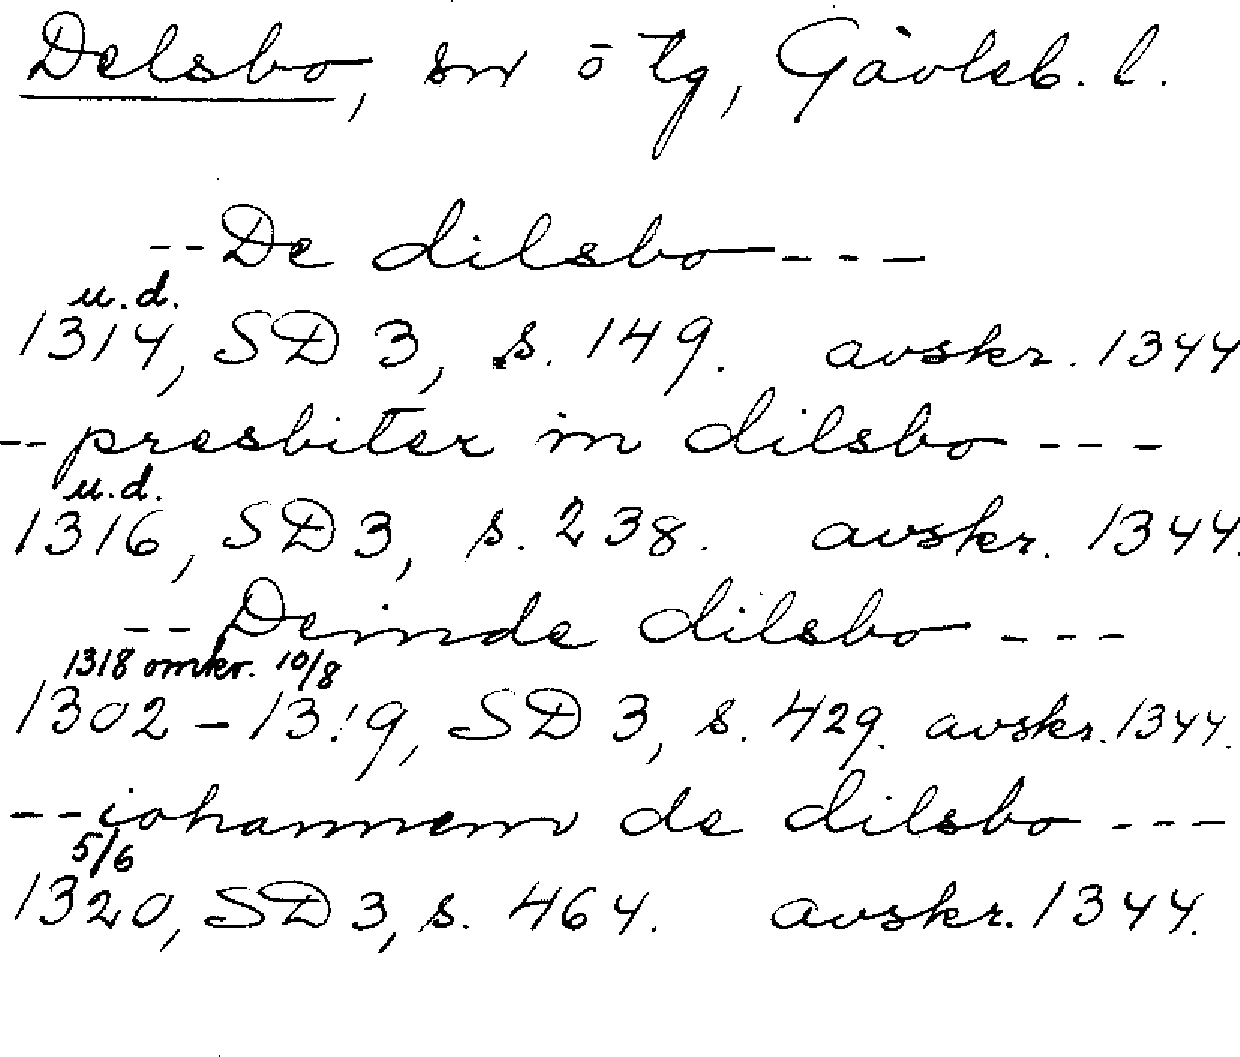 Delsbo, sn o tg, Gävleb. l.
-- De dilsbo ---
u.d.
1314, SD 3, s. 149. avskr. 1344
-- presbiter in dilsbo ---
u.d.
1316, SD 3, s. 238. avskr. 1344.
-- Deinde dilsbo ---
1318 omkr. 10/8
1302-13!9, SD 3, s. 429. avskr. 1344.
-- iohannem de dilsbo ---
5/6
1320, SD 3, s. 464. avskr. 1344.